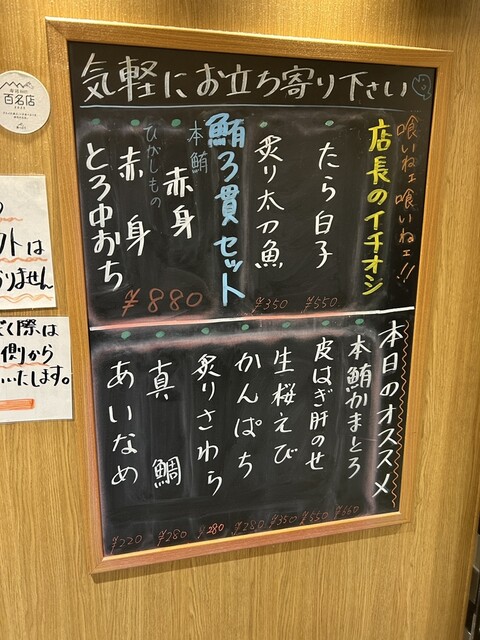 気軽にお立ち寄り下さい
喰いねェ喰いねェ!!
店長のイチオシ
たら白子
¥550
炙り太刀魚
¥350
鮪3貫セット
本鮪
赤身
ひがしもの
赤身
とろ中おち
¥880
本日のオススメ
本鮪かまとろ
皮はぎ肝のせ
¥550
生桜えび
¥350
かんぱち
¥280
炙りさわら
¥280
真鯛
¥280
あいなめ
¥220
百名店
クトは
りません
く際は
側から
いたします。